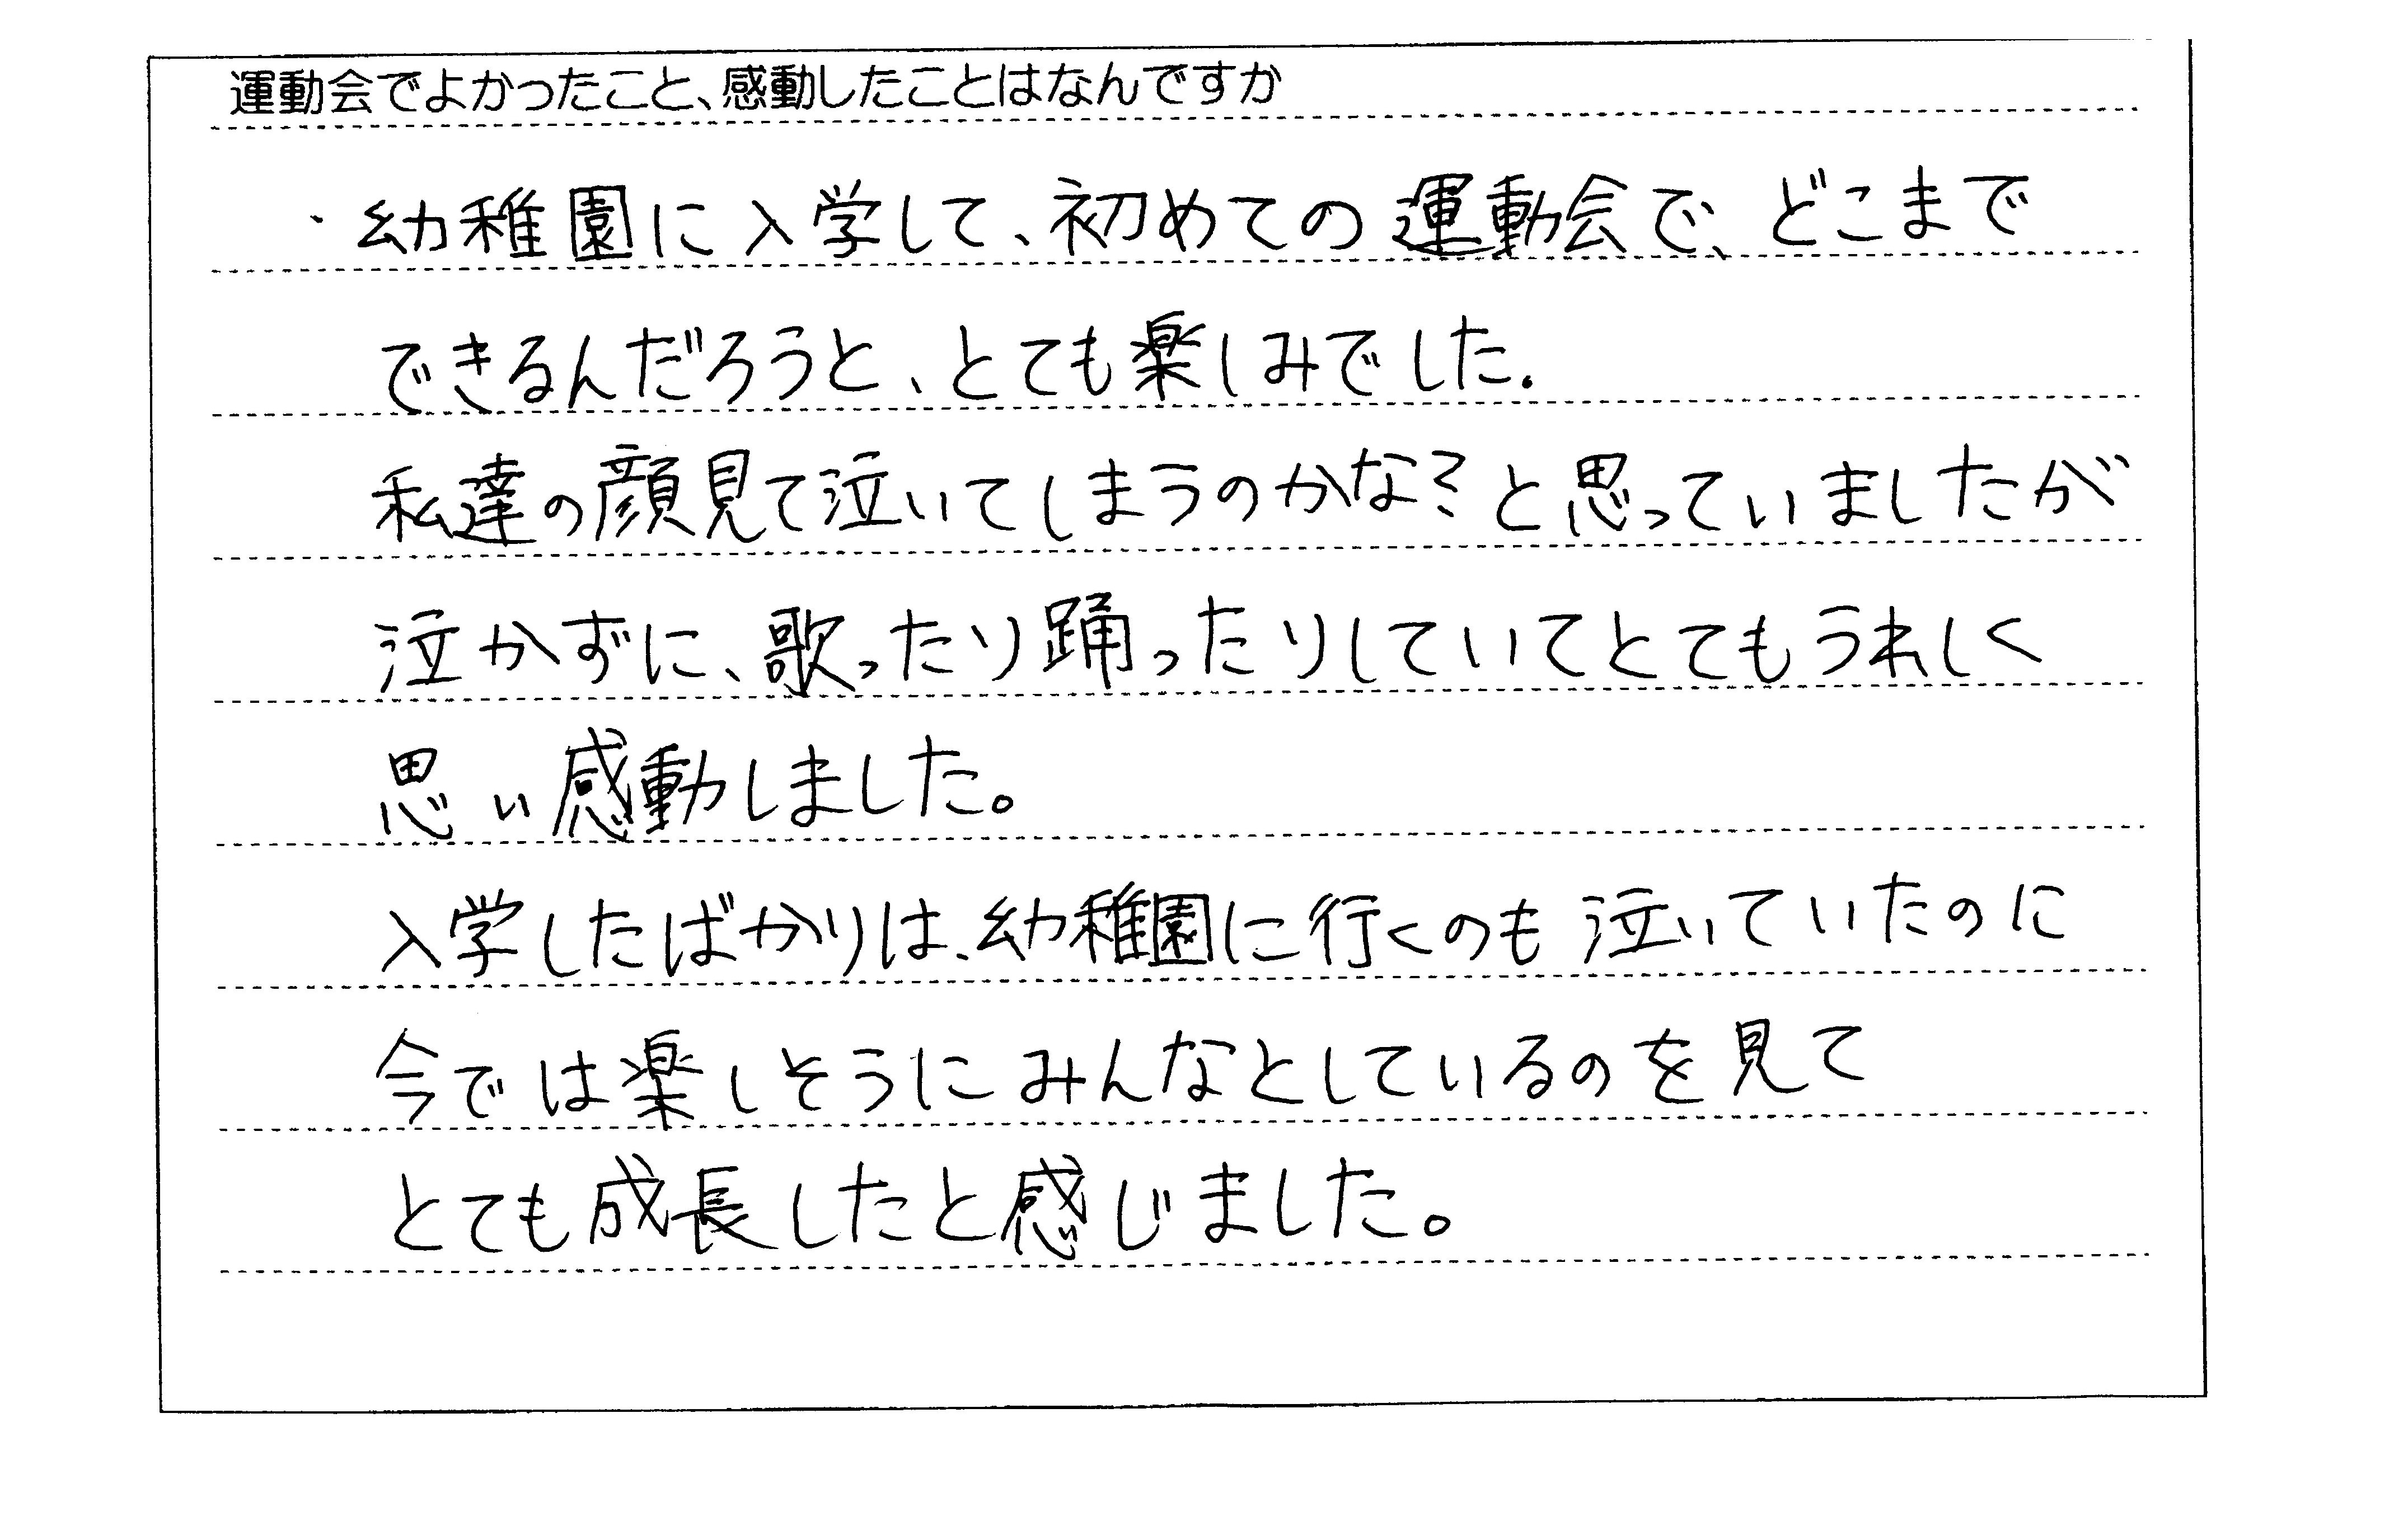 運動会でよかったこと、感動したことはなんですか
・幼稚園に入学して、初めての運動会で、どこまで
できるんだろうと、とても楽しみでした.
私達の顔見て泣いてしまうのかな?と思っていましたが
泣かずに、歌ったり踊ったりしていてとてもうれしく
思い感動しました。
入学したばかりは、幼稚園に行くのも泣いていたのに
今では楽しそうにみんなとしているのを見て
とても成長したと感じました。